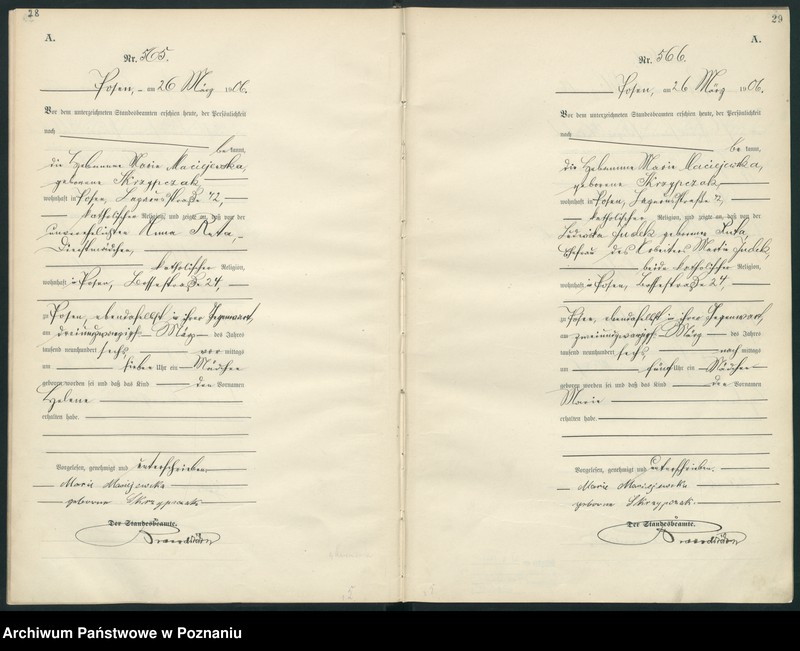 28
A.
Nr. 565.
Posen, am 26 März 1906.
Vor dem unterzeichneten Standesbeamten erschien heute, der Persönlichkeit
nach
be kannt,
die Hebamme Marie Maciejewska,
geborene Skrzypczak,
wohnhaft in Posen, Straße 42,
katholischer Religion, und zeigte an, daß von der
unverehelichten Anna Reta,
Dienstmädchen,
katholischer Religion,
wohnhaft in Posen, 24,
zu Posen, ebendaselbst in ihrer Gegenwart,
am dreiundzwanzigsten März des Jahres
tausend neunhundert sechs vor mittags
um sieben Uhr ein Mädchen
geboren worden sei und daß das Kind den Vornamen
Helene
erhalten habe.
Vorgelesen, genehmigt und unterschrieben
Marie Maciejewska
geborene Skrzypczak
Der Standesbeamte.
29
A.
Nr. 566.
Posen, am 26 März 1906.
Vor dem unterzeichneten Standesbeamten erschien heute, der Persönlichkeit
nach
be kannt,
die Hebamme Marie Maciejewska,
geborene Skrzypczak,
wohnhaft in Posen, 42,
katholischer Religion, und zeigte an, daß von der
Judek geborenen
Ehefrau des Arbeiters Martin Judek,
beide katholischer Religion,
wohnhaft in Posen, 24,
zu Posen, ebendaselbst in ihrer Gegenwart,
am zweiundzwanzigsten März des Jahres
tausend neunhundert sechs nach mittags
um fünf Uhr ein Mädchen
geboren worden sei und daß das Kind den Vornamen
Marie
erhalten habe.
Vorgelesen, genehmigt und unterschrieben.
Marie Maciejewska
geborene Skrzypczak.
Der Standesbeamte.
Archiwum Państwowe w Poznaniu